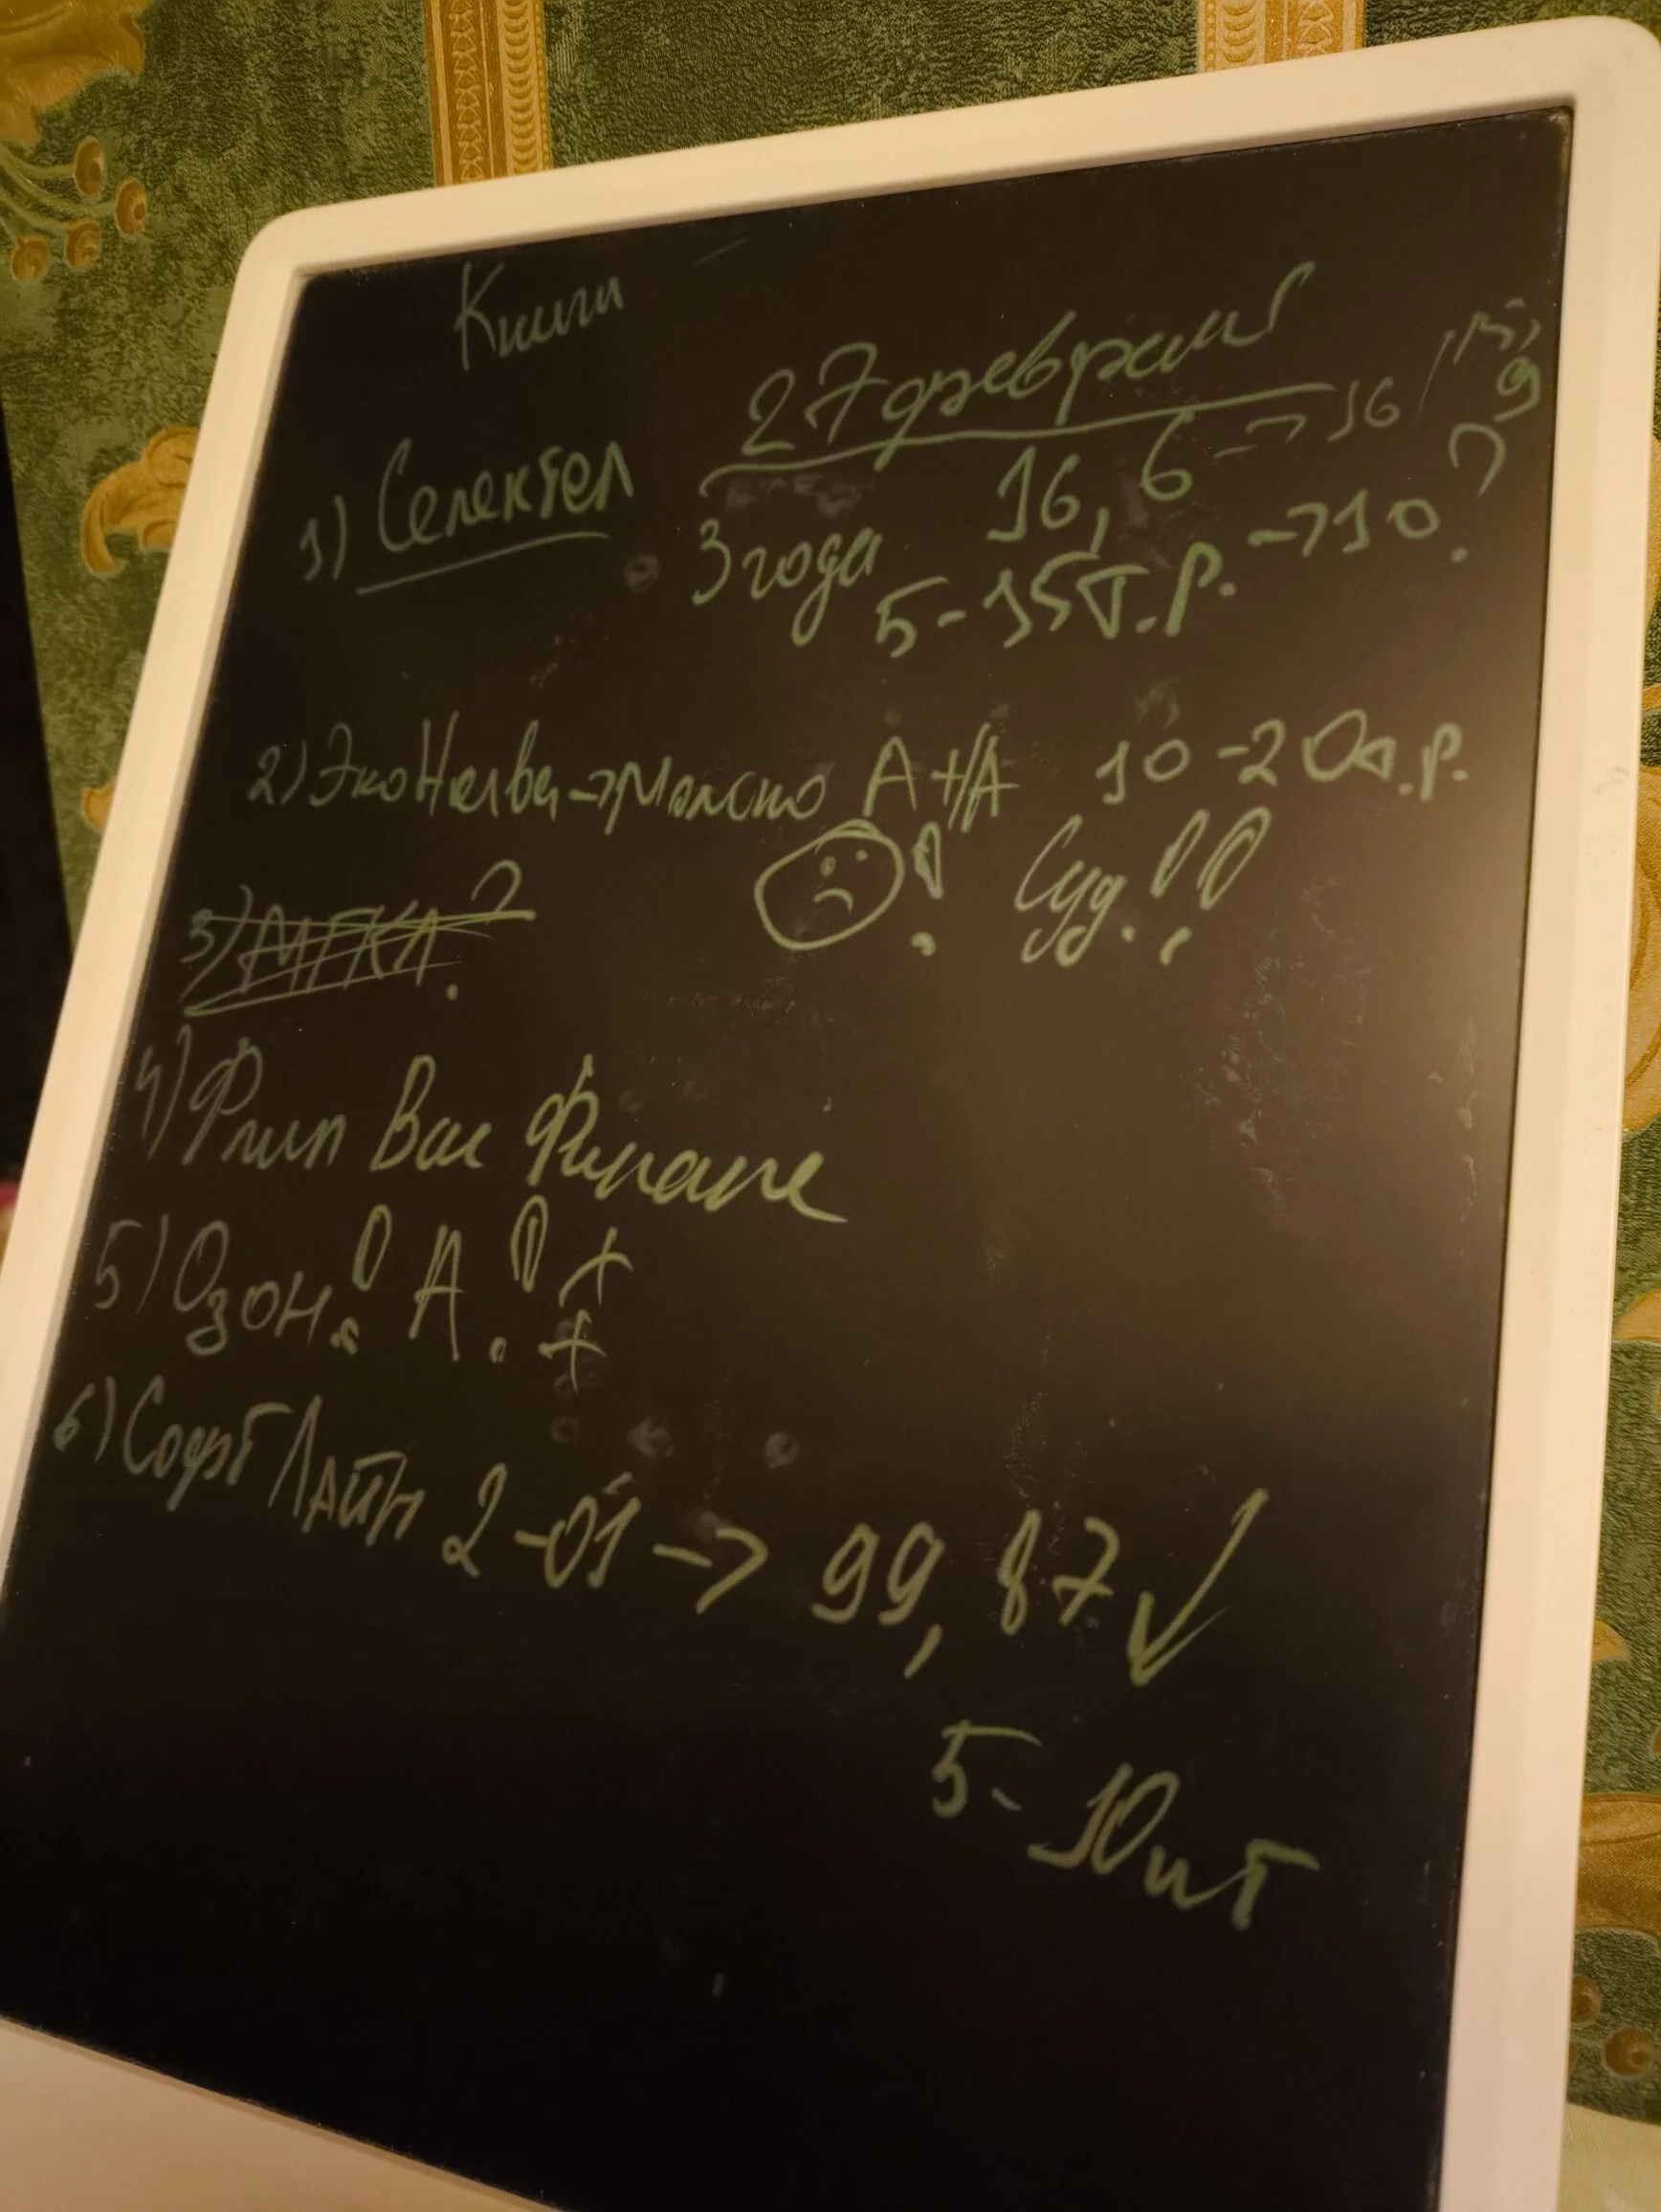 Книги
27 февраля
1) Селектел 16,6 → 16
9
3 года
5-15 т.р. → 10?
2) ЭкоНива → Молоко А+/А 10-20 т.р.
! Суд!!
3) МГКЛ?
4) Флип Вас Финанс
5) Озон! А! +
+
6) Софт Лайн 2-01 → 99,87 ✓
5-10 шт